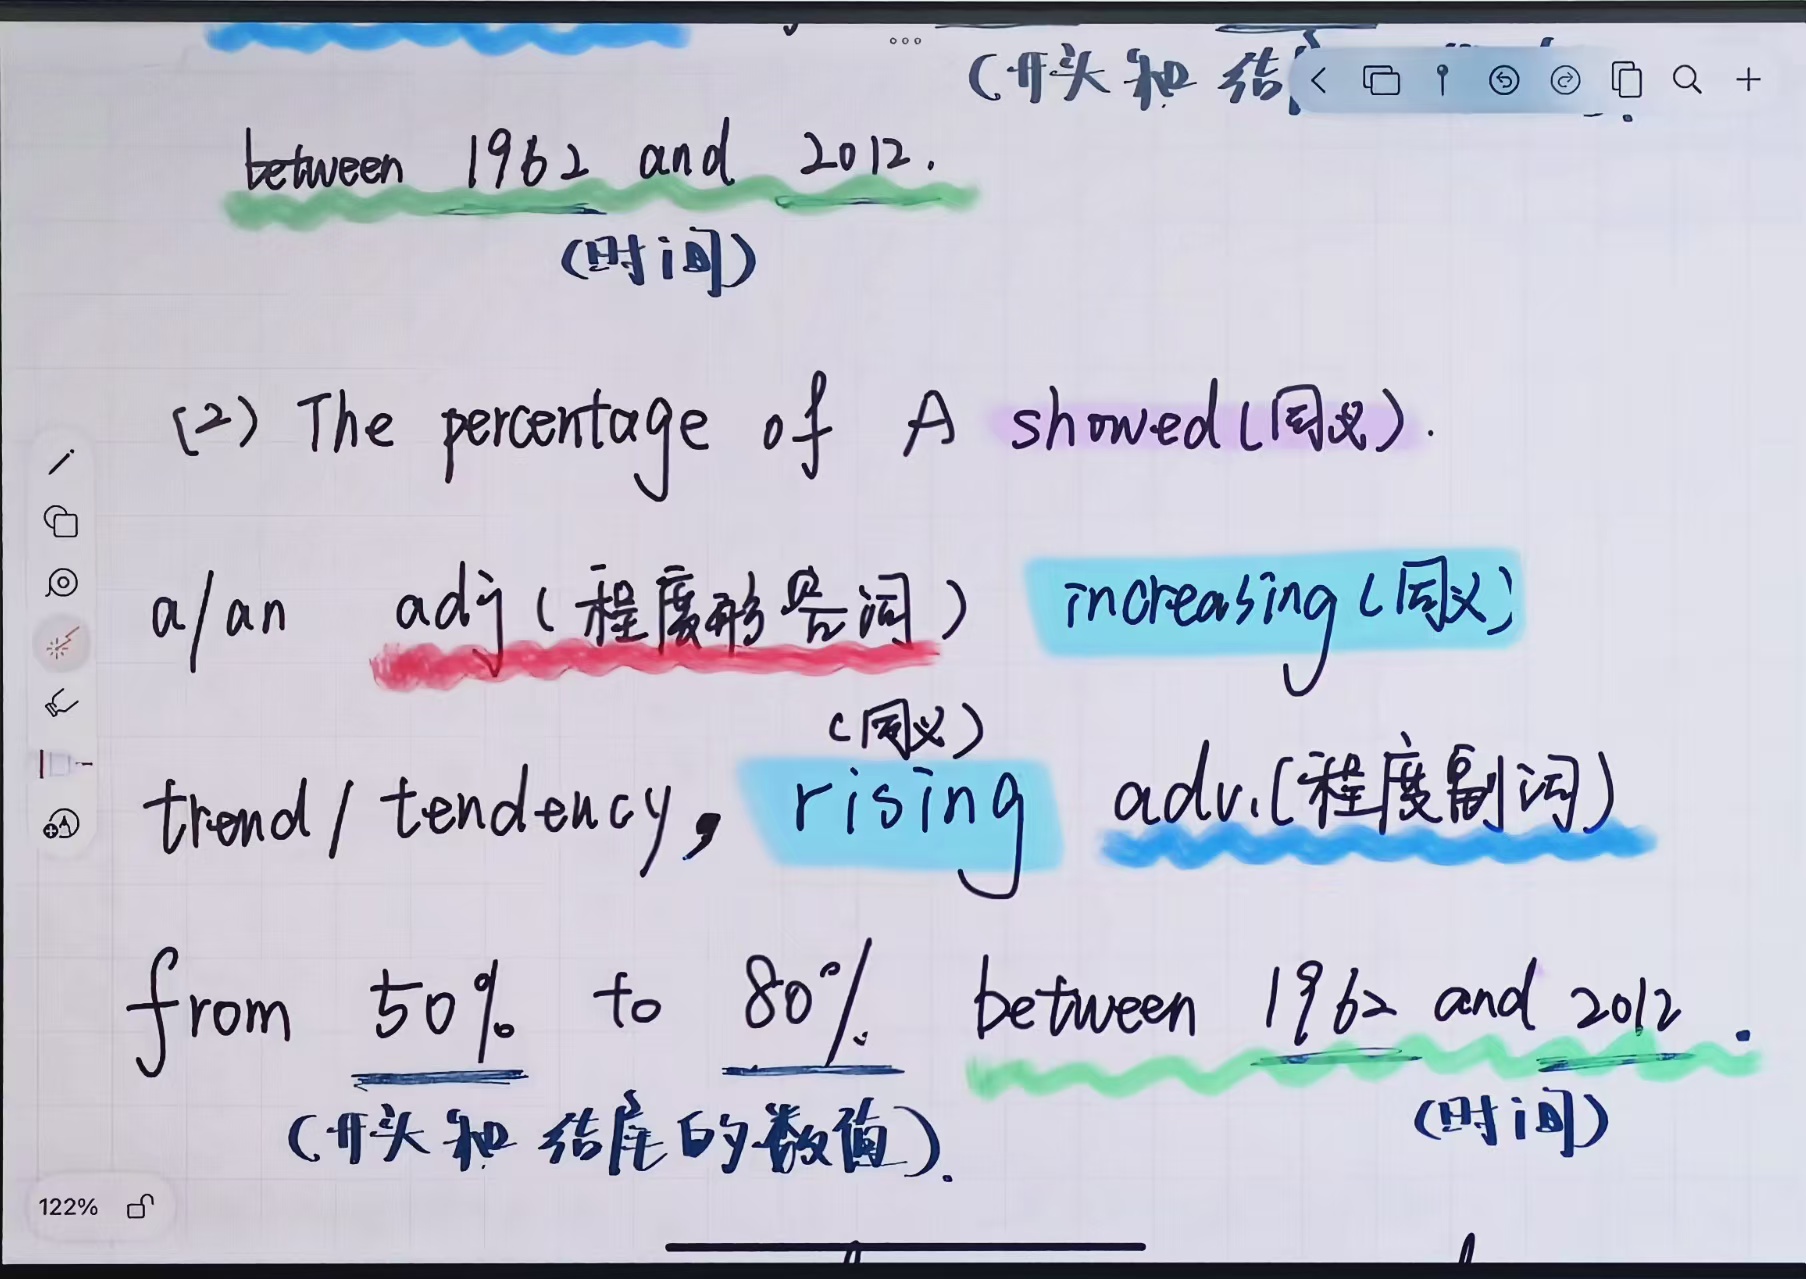 (开头和结
between 1962 and 2012.
(时间)
(2) The percentage of A showed (同义).
a/an adj (程度形容词) increasing (同义)
(同义)
trend / tendency, rising adv. (程度副词)
from 50% to 80% between 1962 and 2012.
(开头和结尾的数值). (时间)
122%